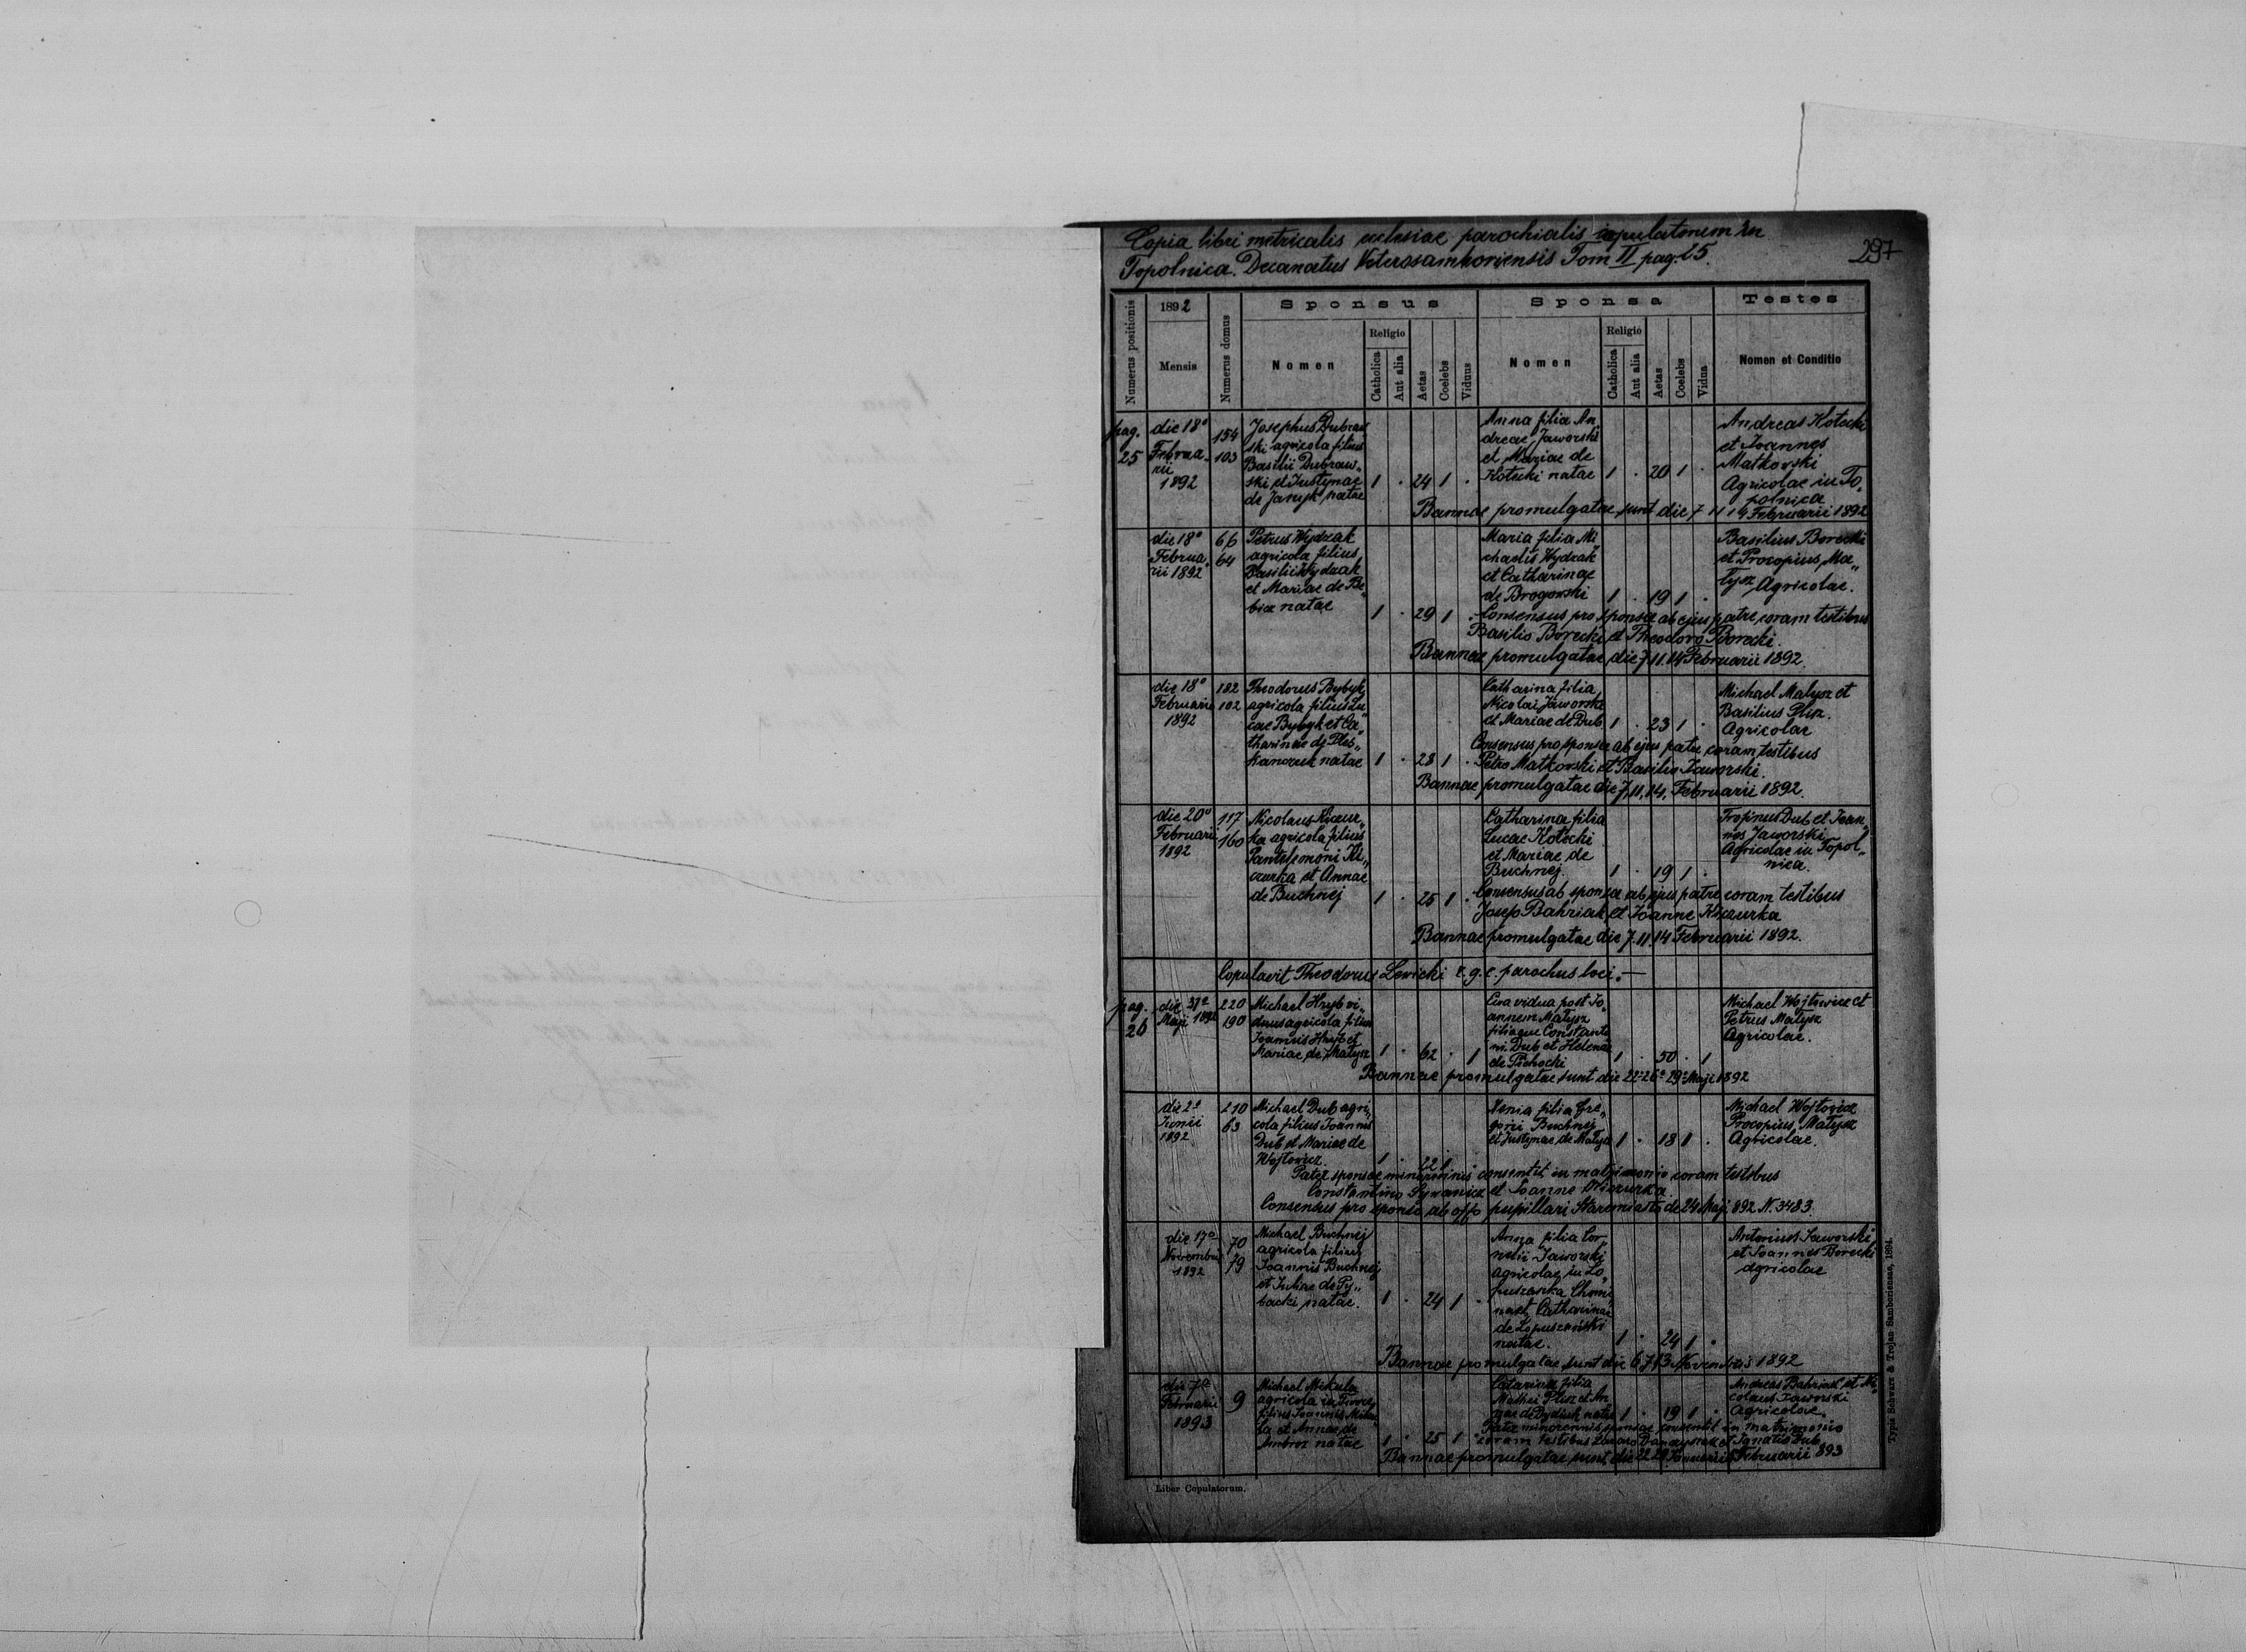 Copia libri metricalis ecclesiae parochialis copulatorum in
Topolnica. Decanatus Veterosamboriensis Tom II pag. 25.
297
Numerus positionis
1892
Mensis
Numerus domus
Sponsus
Nomen
Religio
Catholica
Aut alia
Aetas
Coelebs
Viduus
Sponsa
Nomen
Religio
Catholica
Aut alia
Aetas
Coelebs
Vidua
Testes
Nomen et Conditio
pag.
25
die 18a
Februa-
rii
1892
154
103
Josephus Dubraw
ski agricola filius
Basilii Dubraw„
ski et Justynae
de Janyk natae
1 . 24 1 .
Anna filia An
dreae Jaworski
et Mariae de
Kotecki natae
1 . 20 1 .
Andreas Kotecki
et Joannes
Matkovski
Agricolae in To„
polnica
Bannae promulgatae sunt die 7 11 14 Februarii 1892
die 18a
Februa„
rii 1892
66
64
Petrus Wydzak
agricola filius
Basilii Wydzak
et Mariae de Be„
bica natae
1 . 29 1 .
Maria filia Mi
chaelis Wydzak
et Catharinae
de Brogowski
1 . 19 1 .
Basilius Borecki
et Procopius Ma„
tysz Agricolae.
Consensus pro sponsa ab ejus patre coram testibus
Basilio Borecki et Theodoro Borecki.
Bannae promulgatae die 7.11.14 Februarii 1892.
die 18a
Februarii
1892
182
102
Theodorus Bybyk
agricola filius Lu
cae Bybyk et Ca„
tharinae de Ples„
kanczuk natae
1 . 28 1 .
Catharina filia
Nicolai Jaworski
et Mariae de Dub
1 . 23 1 .
Michael Matysz et
Basilius Plisz.
Agricolae
Consensus pro sponsa ab ejus patre coram testibus
Petro Matkovski et Basilio Jaworski.
Bannae promulgatae die 7, 11, 14, Februarii 1892.
die 20a
Februarii
1892
117
160
Nicolaus Kiczur„
ka agricola filius
Panteleimoni Ki„
czurka et Annae
de Buchnej
1 . 25 1 .
Catharina filia
Lucae Kotecki
et Mariae de
Buchnej.
1 . 19 1 .
Trofinus Dub et Joan„
nes Jaworski
Agricolae in Topol„
nica.
Consensus ab sponsa ab ejus patre coram testibus
Josep Bahriak et Joanne Kiczurka
Bannae promulgatae die 7.11.14 Februarii 1892.
Copulavit Theodorus Lewicki r.g.c. parochus loci.—
pag.
26
die 31a
Maji 1892
220
190
Michael Hryb vi„
duus agricola filius
Joannis Hryb et
Mariae de Matysz
1 . 62 . 1
Eva vidua post Jo„
annem Matysz
filiaque Constanti
ni Dub et Helenae
de Pichocki
1 . 50 . 1
Michael Wojtowicz et
Petrus Matysz
Agricolae.
Bannae promulgatae sunt die 22a 26a 29a Maji 1892
die 2a
Junii
1892
210
63
Michael Dub agri„
cola filius Joannis
Dub et Mariae de
Wojtowicz.
1 . 22 1 .
Xenia filia Gre„
gorii Buchnej
et Justynae de Matysz
1 . 18 1 .
Michael Wojtowicz
Procopius Matysz
Agricolae.
Pater sponsae minorennis consentit in matrimonio coram testibus
Constantino et Joanne Kiczurka.
Consensus pro sponso ab offo pupillari Staremiasto de 24 Maji 892 N. 3483.
die 17a
Novembris
1892
70
79
Michael Buchnej
agricola filius
Joannis Buchnej
et Juliae de Ry„
backi natae.
1 . 24 1 .
Anna filia Cor„
nelii Jaworski
agricolae in Lo„
puszanka Chomi
na et Catharinae
de Lopuszański
natae.
1 . 24 1 .
Antonius Jaworski
et Joannes Borecki
agricolae
Bannae promulgatae sunt die 6, 7, 13 Novembris 1892
die 7a
Februarii
1893
9
Michael Mikula
agricola in
filius Joannis Miku
la et Annae de
natae
1 . 25 1 .
Catarina filia
Mathei Plisz et An
nae de Dydiuk natae
1 . 19 1 .
Andreas Bahriak et Ni„
colaus Jaworski
Agricolae.
Pater minorennis sponsae consentit in matrimonio
coram testibus et Ignatio Dub
Bannae promulgatae sunt die 22 29 Januarii Februarii 893
Liber Copulatorum.
Typis Schwarz & Trojan Samboriensis, 1894.